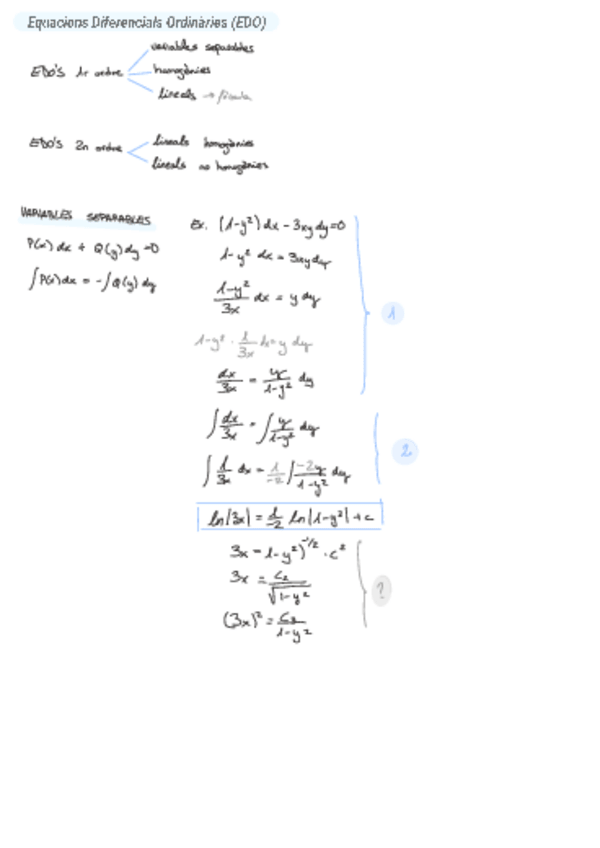 Equacions Diferencials Ordinàries (EDO)
EDO'S 1r ordre
variables separables
homogènies
lineals → fórmula
EDO'S 2n ordre
lineals homogènies
lineals no homogènies
VARIABLES SEPARABLES
P(x) dx + Q(y) dy = 0
∫ P(x) dx = - ∫ Q(y) dy
Ex. (1-y²) dx - 3xy dy = 0
1-y² dx = 3xy dy
(1-y²)/3x dx = y dy
1-y² · 1/3x dx = y dy
dx/3x = y/(1-y²) dy
1
∫ dx/3x = ∫ y/(1-y²) dy
∫ 1/3x dx = 1/-2 ∫ -2y/(1-y²) dy
2
ln|3x| = 1/-2 ln|1-y²| + c
3x = 1-y²)^-1/2 · c²
3x = c₂/√(1-y²)
(3x)² = c₃/(1-y²)
?